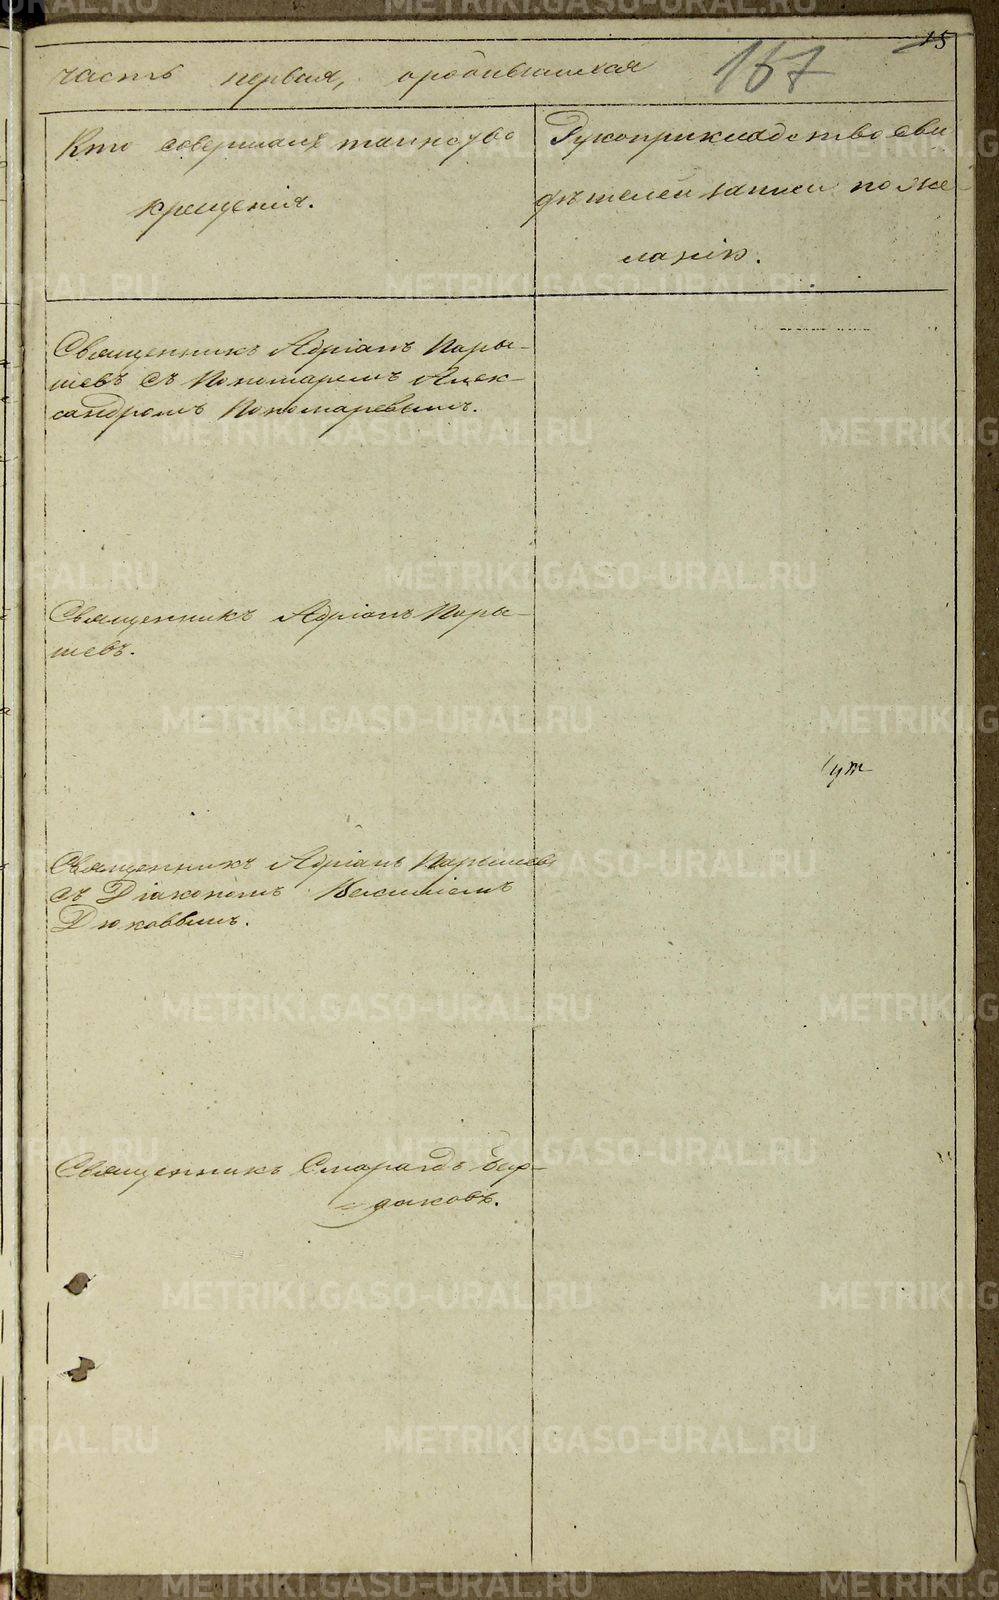 15
часть первая, о родившихся 167
Кто совершалъ таинство
крещенія.
Рукоприкладство сви
дѣтелей записи по же-
ланію.
Священникъ Адріанъ Пары-
шевъ съ Пономаремъ Алек-
сандромъ Пономаревымъ.
Священникъ Адріанъ Пары-
шевъ.
Священникъ Адріанъ Парышевъ
съ Діакономъ
Дюковымъ.
Священникъ Смарагдъ Бир-
дюковъ.
METRIKI.GASO-URAL.RU